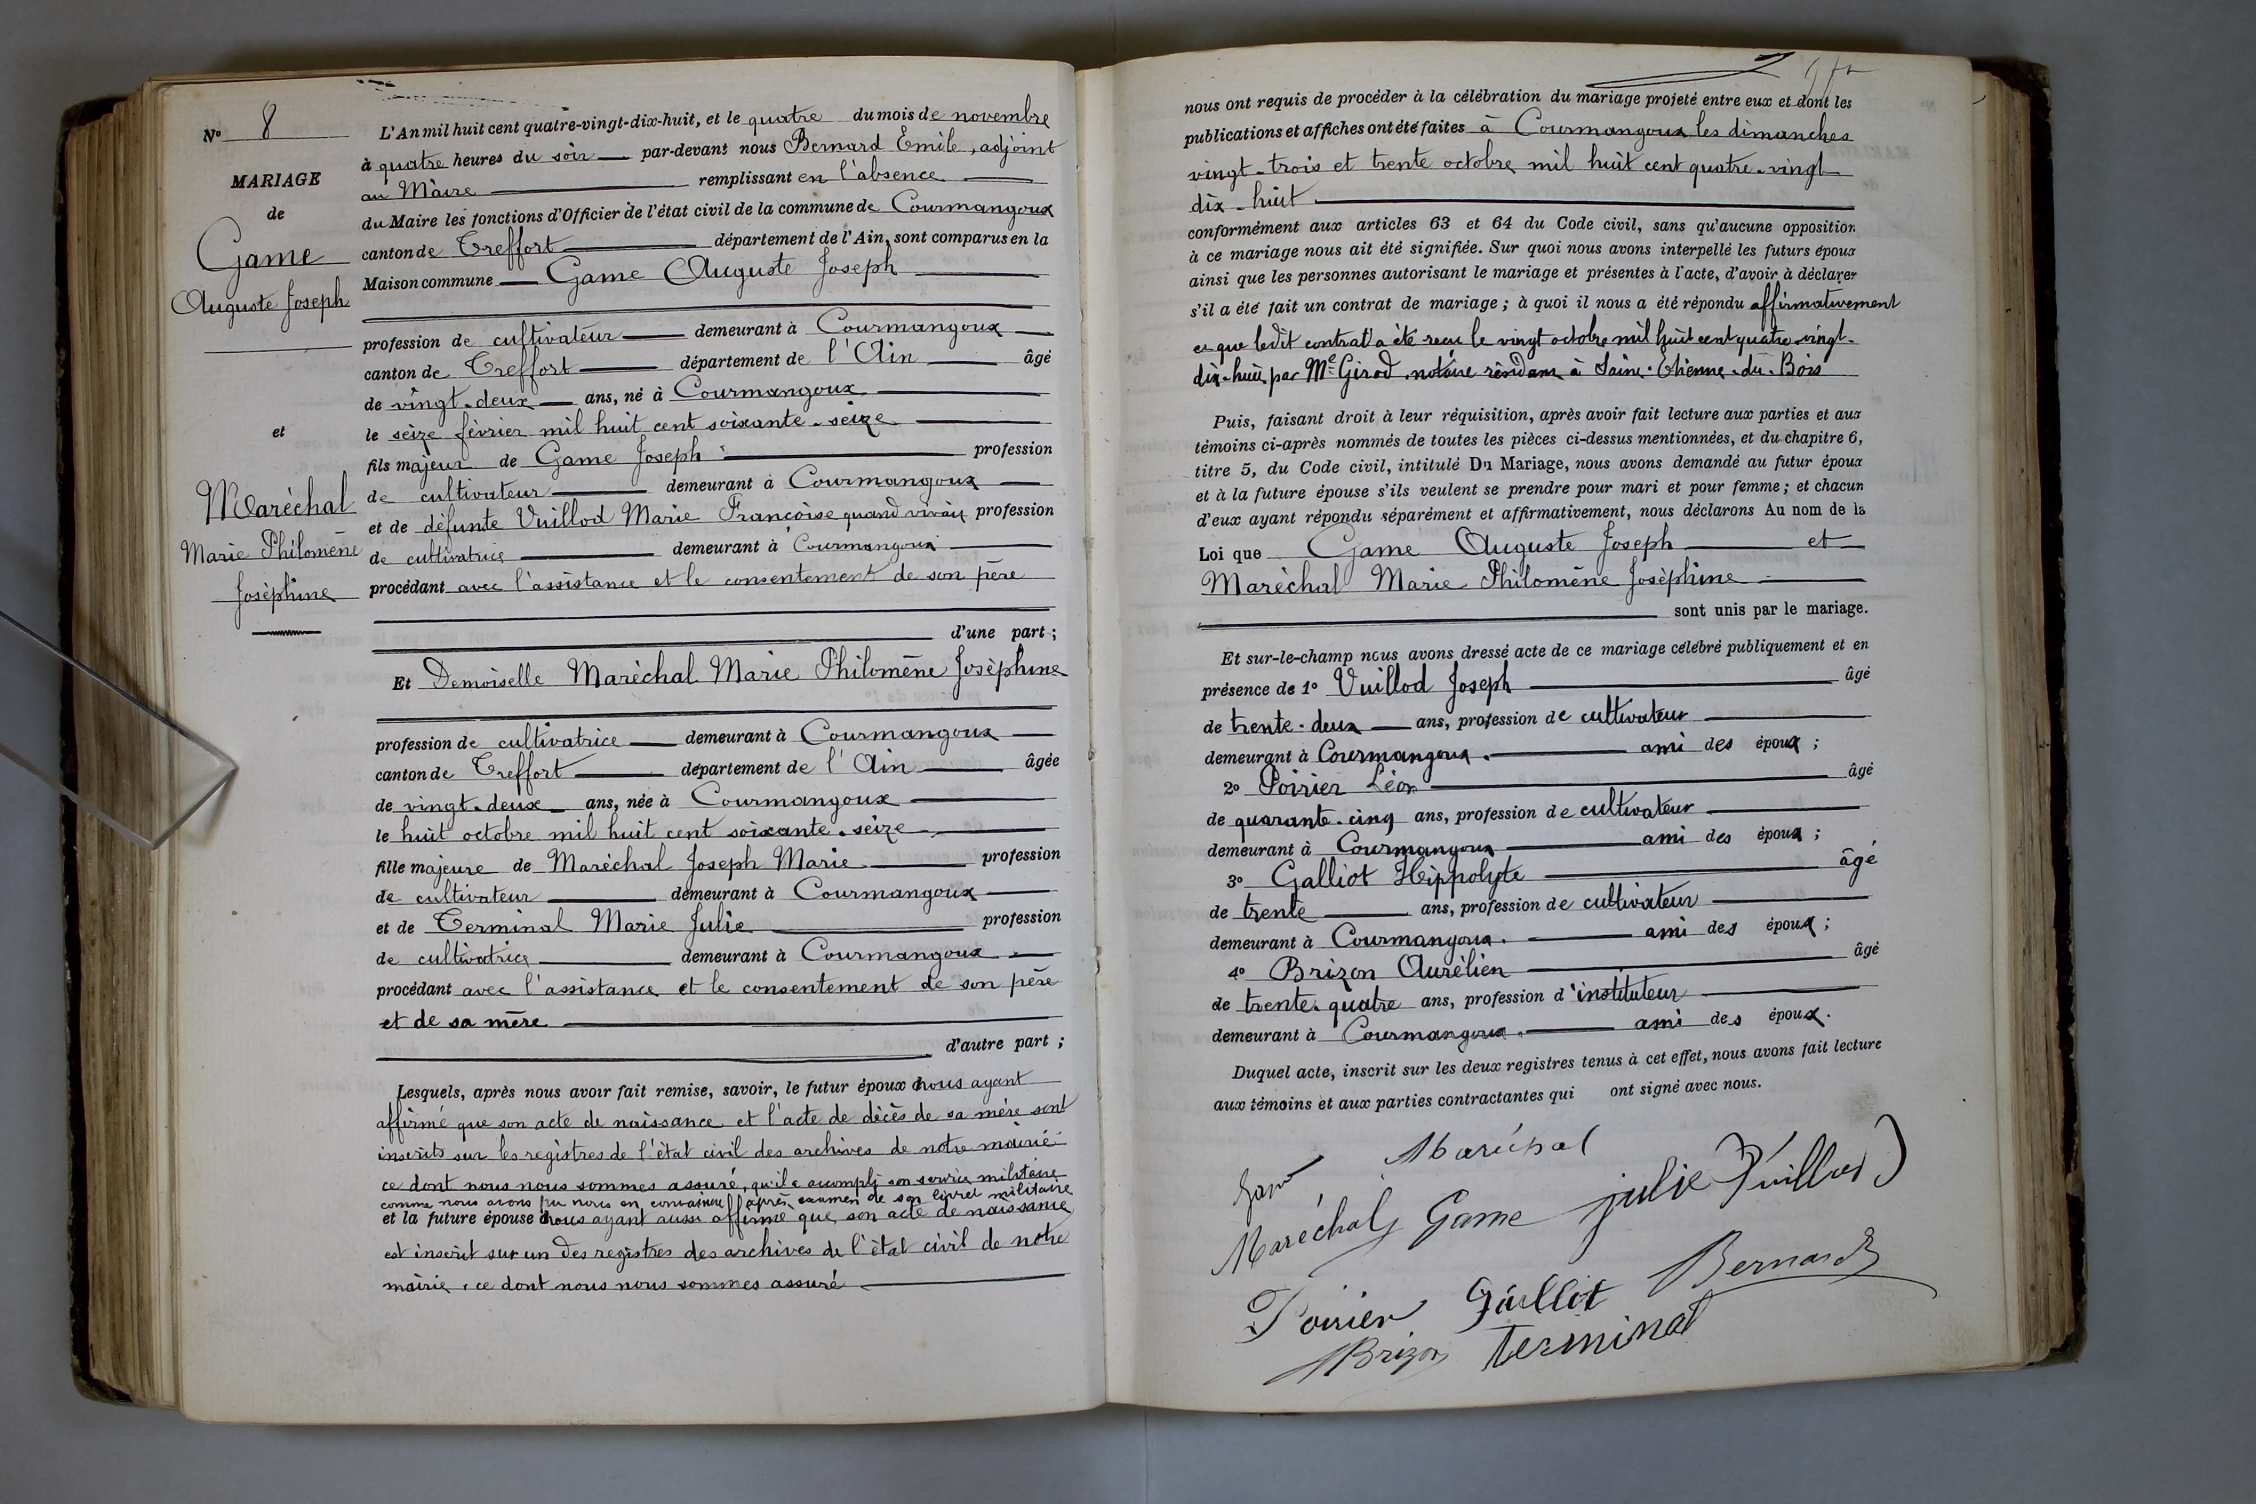 N° 8
MARIAGE
de
Game
Auguste Joseph
et
Maréchal
Marie Philomène
Joséphine
L'An mil huit cent quatre-vingt-dix-huit, et le quatre du mois de novembre
à quatre heures du soir par-devant nous Bernard Emile, adjoint
au Maire remplissant en l'absence
du Maire les fonctions d'Officier de l'état civil de la commune de Courmangoux
canton de Treffort département de l'Ain, sont comparus en la
Maison commune Game Auguste Joseph
profession de cultivateur demeurant à Courmangoux
canton de Treffort département de l'Ain âgé
de vingt-deux ans, né à Courmangoux
le seize février mil huit cent soixante-seize
fils majeur de Game Joseph profession
de cultivateur demeurant à Courmangoux
et de défunte Vuillod Marie Françoise quand vivait profession
de cultivatrice demeurant à Courmangoux
procédant avec l'assistance et le consentement de son père
d'une part ;
Et Demoiselle Maréchal Marie Philomène Joséphine
profession de cultivatrice demeurant à Courmangoux
canton de Treffort département de l'Ain âgée
de vingt-deux ans, née à Courmangoux
le huit octobre mil huit cent soixante-seize
fille majeure de Maréchal Joseph Marie profession
de cultivateur demeurant à Courmangoux
et de Terminal Marie Julie profession
de cultivatrice demeurant à Courmangoux
procédant avec l'assistance et le consentement de son père
et de sa mère
d'autre part ;
Lesquels, après nous avoir fait remise, savoir, le futur époux nous ayant
affirmé que son acte de naissance et l'acte de décès de sa mère sont
inscrits sur les registres de l'état civil des archives de notre mairie
ce dont nous nous sommes assuré, qu'il a accompli son service militaire
comme nous avons pu nous en convaincre après examen de son livret militaire
et la future épouse nous ayant aussi affirmé que son acte de naissance
est inscrit sur un des registres des archives de l'état civil de notre
mairie, ce dont nous nous sommes assuré
nous ont requis de procéder à la célébration du mariage projeté entre eux et dont les
publications et affiches ont été faites à Courmangoux les dimanches
vingt-trois et trente octobre mil huit cent quatre-vingt
dix-huit
conformément aux articles 63 et 64 du Code civil, sans qu'aucune opposition
à ce mariage nous ait été signifiée. Sur quoi nous avons interpellé les futurs époux
ainsi que les personnes autorisant le mariage et présentes à l'acte, d'avoir à déclarer
s'il a été fait un contrat de mariage ; à quoi il nous a été répondu affirmativement
et que ledit contrat a été reçu le vingt octobre mil huit cent quatre-vingt-
dix-huit par Me Girod, notaire résidant à Saint-Etienne-du-Bois
Puis, faisant droit à leur réquisition, après avoir fait lecture aux parties et aux
témoins ci-après nommés de toutes les pièces ci-dessus mentionnées, et du chapitre 6,
titre 5, du Code civil, intitulé Du Mariage, nous avons demandé au futur époux
et à la future épouse s'ils veulent se prendre pour mari et pour femme ; et chacun
d'eux ayant répondu séparément et affirmativement, nous déclarons Au nom de la
Loi que Game Auguste Joseph et
Maréchal Marie Philomène Joséphine
sont unis par le mariage.
Et sur-le-champ nous avons dressé acte de ce mariage célébré publiquement et en
présence de 1° Vuillod Joseph âgé
de trente-deux ans, profession de cultivateur
demeurant à Courmangoux. ami des époux ;
2° Poirier Léon âgé
de quarante-cinq ans, profession de cultivateur
demeurant à Courmangoux ami des époux ;
3° Galliot Hippolyte âgé
de trente ans, profession de cultivateur
demeurant à Courmangoux. ami des époux ;
4° Brizon Aurélien âgé
de trente-quatre ans, profession d'instituteur
demeurant à Courmangoux. ami des époux.
Duquel acte, inscrit sur les deux registres tenus à cet effet, nous avons fait lecture
aux témoins et aux parties contractantes qui ont signé avec nous.
Maréchal
Maréchal Game julie Vuillod
Poirier Galliot Bernard
Brizon Terminal